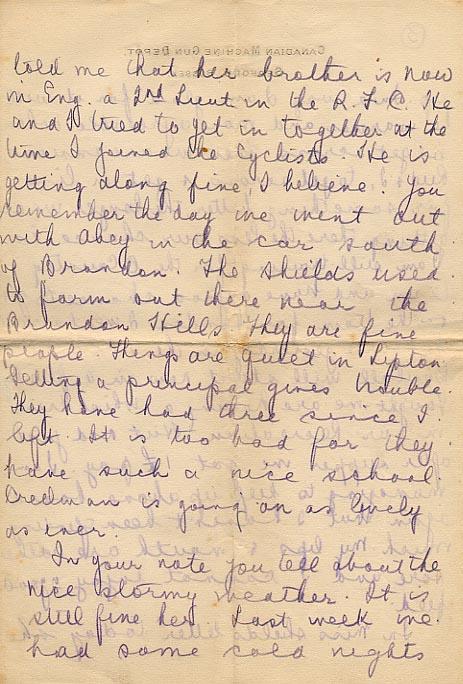 told me that her brother is now
in Eng. a 2nd Lieut in the R.F.C. He
and I tried to get in together at the
time I joined the Cyclists. He is
getting along fine I believe. You
remember the day we went out
with Abey in the car south
of Brandon. The Shields used
to farm out there near the
Brandon Hills. They are fine
people. Things are quiet in Lipton
Getting a principal gives trouble.
They have had three since I
left. It is too bad for they
have such a nice school.
is going on as lively
as ever.
In your note you tell about the
nice stormy weather. It is
still fine here. Last week we
had some cold nights
CANADIAN MACHINE GUN DEPOT